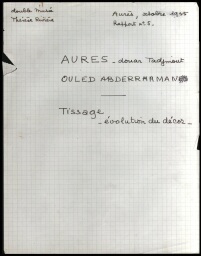 double Musée
Thérèse Rivière
Aurès, octobre 1935
Rapport n° 5.
AURES - douar Tadjmout
OULED ABDERRAHMAN
Tissage
- évolution du décor -